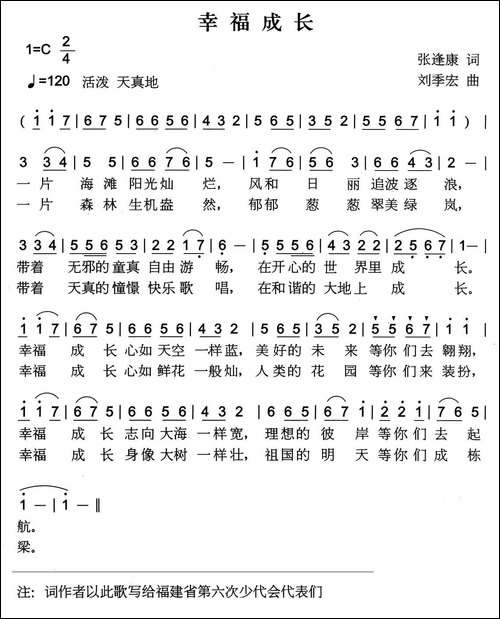 幸福成长
1=C 2/4
张逢康 词
♩=120 活泼 天真地
刘季宏 曲
( i i 7 | 6 7 5 | 6 5 6 | 2 4 3 | 5 3 5 | 6 5 6 | 3 5 2 | 5 5 6 7 | i i )
3 3 4 | 5 5 | 6 6 7 6 | 5 — | i 7 6 | 5 5 3 | 6 6 4 3 | 2 — |
一片 海滩 阳光灿 烂, 风和 日 丽 追波逐 浪,
一片 森林 生机盎 然, 郁郁 葱 葱 翠美绿 岚,
3 3 4 | 5 5 5 5 | 3 2 2 1 7 | 6 — | 5 5 5 6 | 4 3 3 2 | 2 5 6 7 | 1 — |
带着 无邪的童真 自由游 畅, 在开心的 世 界里 成 长。
带着 天真的憧憬 快乐歌 唱, 在和谐的 大地上 成 长。
i i 7 | 6 7 5 | 6 5 5 6 | 2 4 3 | 5 5 5 3 | 6 5 6 | 3 5 2 | 5 5 6 7 | i i 2 |
幸福 成 长 心如天空 一样蓝, 美好的 未 来 等你 们去 翱翔,
幸福 成 长 心如鲜花 一般灿, 人类的 花 园 等你 们来 装扮,
i i 7 | 6 7 5 | 6 5 5 6 | 4 3 2 | 5 5 5 3 | 6 5 6 7 | i 2 | 2 2 i | 7 6 5 |
幸福 成 长 志向大海 一样宽, 理想的 彼 岸 等你 们 去 起
幸福 成 长 身像大树 一样壮, 祖国的 明 天 等你 们 成 栋
i — | i — ‖
航。
梁。
注: 词作者以此歌写给福建省第六次少代会代表们